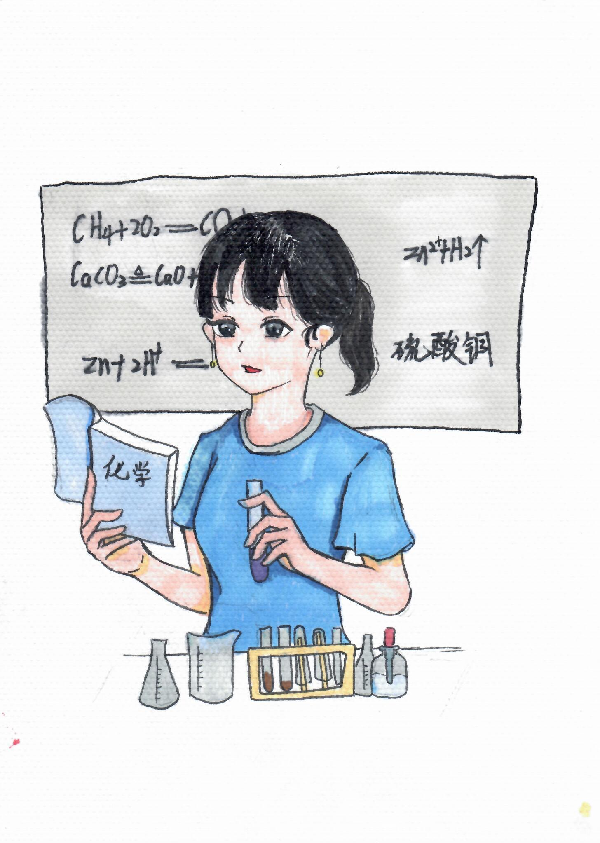 CH₄+2O₂══CO
CaCO₃≜CaO+
Zn+2H⁺══
Zn²⁺+H₂↑
硫酸铜
化学